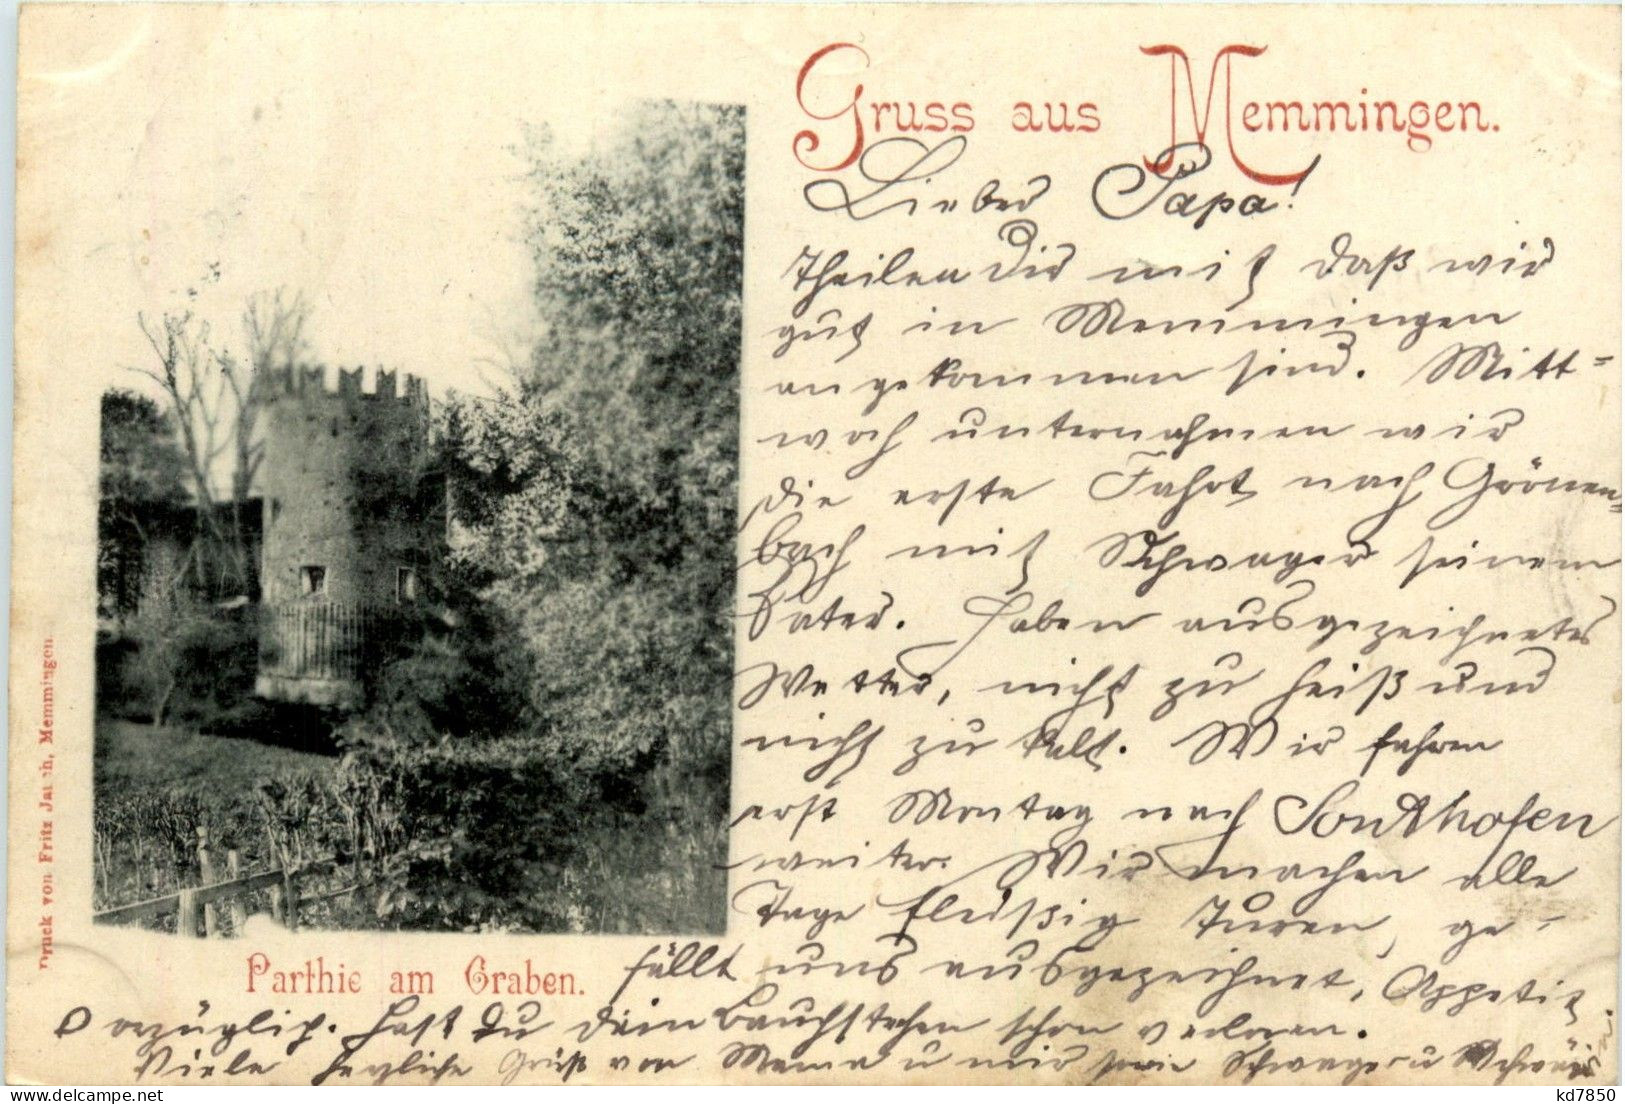 Gruss aus Memmingen.
Lieber Papa!
Theilen Dir mit daß wir
gut in Memmingen
angekommen sind. Mitt-
woch unternahmen wir
die erste Fahrt nach Grönen-
bach mit Schwager seinem
Vater. Haben ausgezeichnetes
Wetter, nicht zu heiß und
nicht zu kalt. Wir fahren
erst Montag nach Sonthofen
weiter. Wir machen alle
Tage fleißig Turen, ge-
fällt uns ausgezeichnet, Appetit
vorzüglich. Hast Du Dein Bauchstechen schon verloren.
Viele herzliche Grüß von Mama u mir sowie Schwager u
Parthie am Graben.
Druck von Fritz Memmingen
kd7850